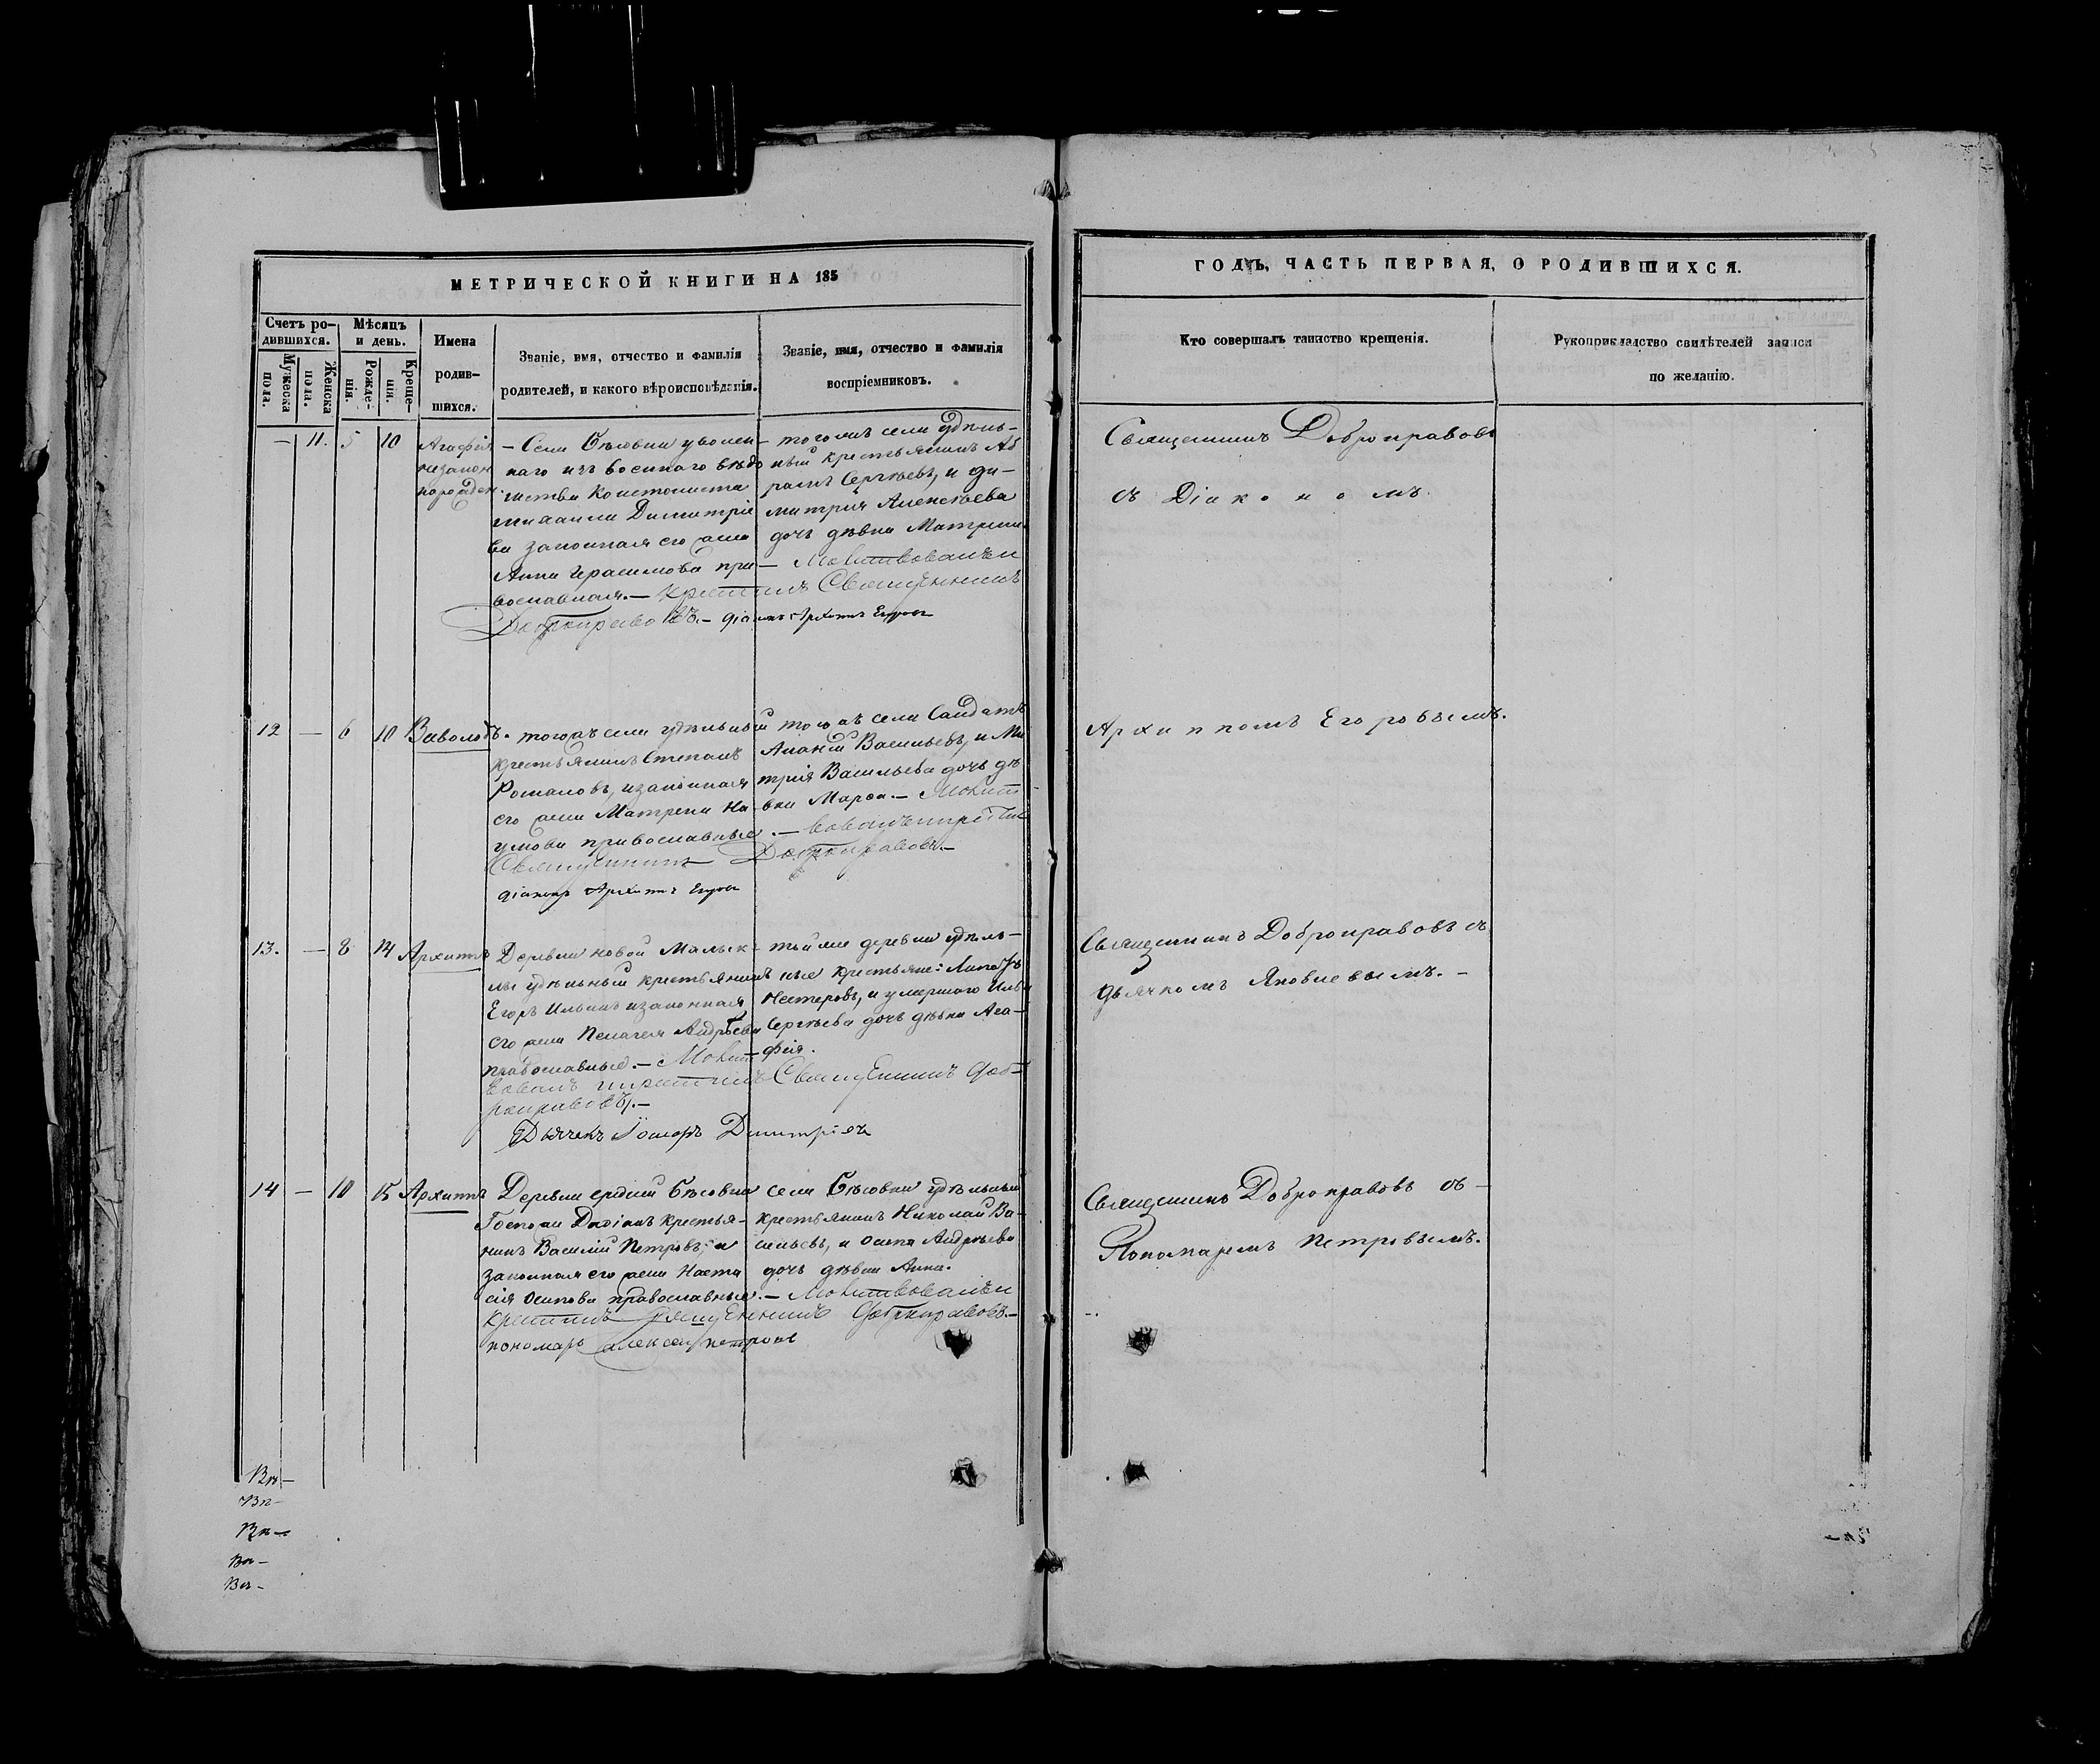 МЕТРИЧЕСКОЙ КНИГИ НА 185
ГОДЪ, ЧАСТЬ ПЕРВАЯ, О РОДИВШИХСЯ.
Счетъ ро-
дившихся.
Мужеска
пола.
Женска
пола.
Мѣсяцъ
и день.
Рожде-
нія.
Креще-
нія.
Имена
родив-
шихся.
Званіе, имя, отчество и фамилія
родителей, и какого вѣроисповѣданія.
Званіе, имя, отчество и фамилія
воспріемниковъ.
Кто совершалъ таинство крещенія.
Рукоприкладство свидѣтелей записи
по желанію.
— 11. 5 10
Агафія
незакон
норожден
— Села уволен
наго изъ военнаго вѣдо
мства Кантониста
Димитріе
ва законная его жена
Анна Герасимова пра
вославная. — крестилъ Священникъ
Доброправовъ. — діаконъ Архиппъ Егоровъ
— тогожъ села удѣль-
ный крестьянинъ Аб
рамъ Сергѣевъ, и Ди-
митрія Алексѣева
дочь дѣвка Матрена
— Молитвовалъ и
Священникъ Доброправовъ
съ Діакономъ
12 — 6 10 Вавола
тогожъ села удѣльный
крестьянинъ Степанъ
Романовъ, и законная
его жена Матрена На
умова православные. — вовалъ и крестилъ
Священникъ Доброправовъ. —
діаконъ Архиппъ Егоровъ
тогожъ села Солдатъ
Ананій Васильевъ, и Ми
трія Васильева дочь дѣ
вка Марѳа. — Молит
Архиппомъ Егоровымъ.
13. — 8 14 Архиппъ
Деревни новой Малык
лы удѣльный крестьянинъ
Егоръ Ильинъ и законная
его жена Пелагея Андрѣева
православные. — Молит
вовалъ и крестилъ Священникъ Доб-
роправовъ. —
Дьячекъ Димитріевъ
той же деревни удѣль-
ные крестьяне:
Нестеровъ, и умершаго Ильи
Сергѣева дочь дѣвка Ага-
фія.
Священникъ Доброправовъ съ
Дьячкомъ Яковлевымъ. —
14 — 10 15 Архиппъ
Деревни средней
Госпожи крестья-
нинъ Василій Петровъ, и
законная его жена Наста
сія Осипова православные. — Молитвовалъ и
крестилъ Священникъ Доброправовъ. —
пономарь Алексѣй Петровъ
села удѣльный
крестьянинъ Николай Ва-
сильевъ, и Осипа Андрѣева
дочь дѣвка Анна.
Священникъ Доброправовъ съ —
Пономаремъ Петровымъ.